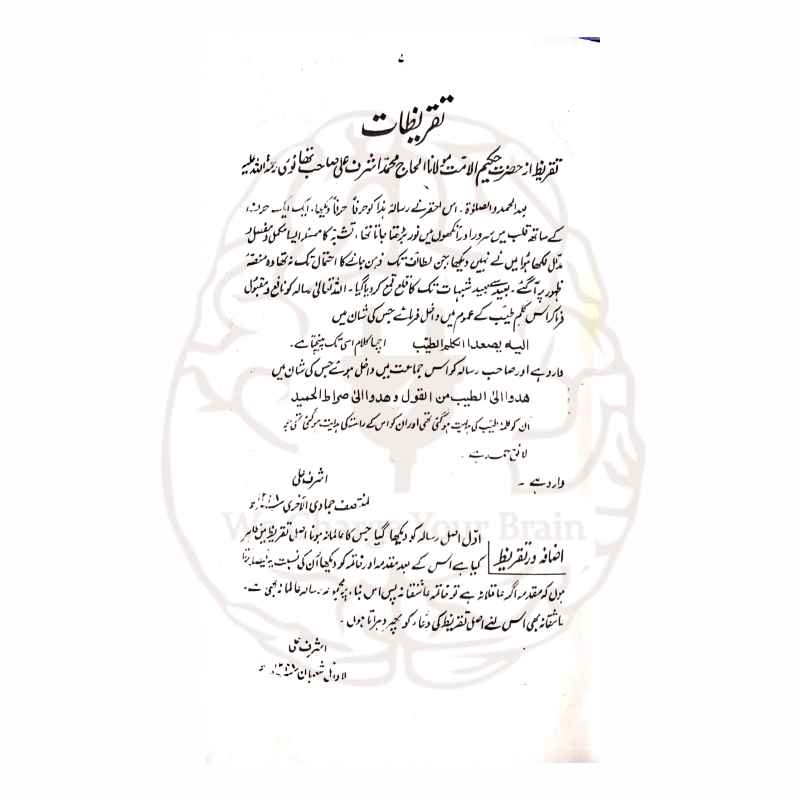 ۷
تقریظات
تقریظ از حضرت حکیم الامت مولانا الحاج محمد اشرف علی صاحب تھانوی رحمۃ اللہ علیہ
بعد الحمد والصلوٰۃ۔ اس احقر نے رسالہ ہذا کو حرفاً حرفاً دیکھا، ایک ایک حرف
کے ساتھ قلب میں سرور اور آنکھوں میں نور بڑھتا جاتا تھا، تشبہ کا مسئلہ ایسا مکمل و مفصل و
مدلل لکھا ہوا میں نے نہیں دیکھا جن لطائف تک ذہن جانے کا احتمال تک نہ تھا وہ منصّۂ
ظہور پر آگئے۔ بعید سے بعید شبہات تک کا قلع قمع کر دیا گیا۔ اللہ تعالیٰ رسالہ کو نافع و مقبول
فرما کر اس کلم طیب کے عموم میں داخل فرمائے جس کی شان میں
الیہ یصعد الکلم الطیب اچھا کلام اسی تک پہنچتا ہے۔
وارد ہے اور صاحب رسالہ کو اس جماعت میں داخل ہوئے جس کی شان میں
ھدوا الی الطیب من القول و ھدوا الی صراط الحمید
ان کو کلمۂ طیب کی ہدایت ہو گئی تھی اور ان کو اس کے راستہ کی ہدایت ہو گئی تھی جو
لائق حمد ہے۔
وارد ہے۔
اشرف علی
لمنتصف جمادی الاخریٰ
We Change Your Brain
اول اصل رسالہ کو دیکھا گیا جس کا عالمانہ ہونا اصل تقریظ میں ظاہر
اضافہ در تقریظ کیا ہے اس کے بعد مقدمہ اور خاتمہ کو دیکھا ان کی نسبت یہ فیصلہ کرتا
ہوں کہ مقدمہ اگر عاقلانہ ہے تو خاتمہ عاشقانہ پس اس بناء پر مجموعہ رسالہ عالمانہ بھی ہے۔
عاشقانہ بھی اس لئے اصل تقریظ کی دعاء کو پھر دہراتا ہوں۔
اشرف علی
شعبان